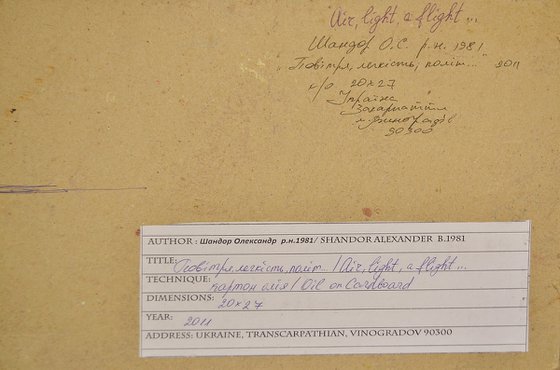 Air, light, a flight...
Шандор О.С. р.н. 1981
"Повітря, легкість, політ..." 2011
к/о 20x27
Україна
Закарпаття
м. Виноградів
90300
AUTHOR : Шандор Олександр р.н.1981/ SHANDOR ALEXANDER B.1981
TITLE: Повітря, легкість, політ... / Air, light, a flight...
TECHNIQUE: картон олія / Oil on Cardboard
DIMENSIONS: 20x27
YEAR: 2011
ADDRESS: UKRAINE, TRANSCARPATHIAN, VINOGRADOV 90300